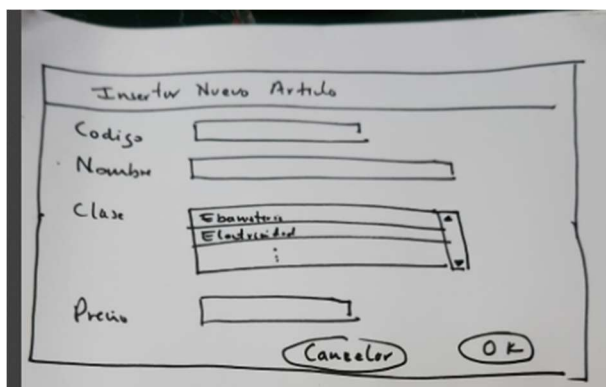 Insertar Nuevo Articulo
Codigo
Nombre
Clase
Ebanisteria
Electricidad
Precio
Cancelar OK